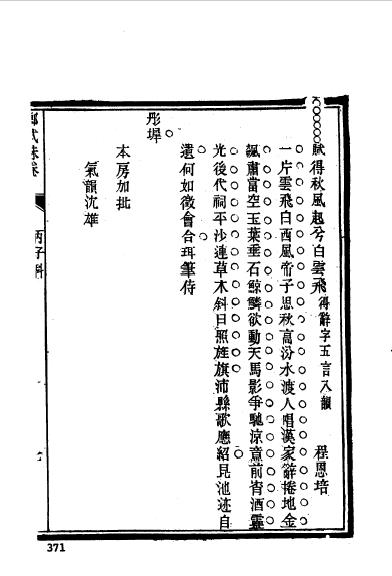 賦得秋風起兮白雲飛得辭字五言八韻 程恩培
一片雲飛白西風帝子思秋高汾水渡人唱漢家辭捲地金
飈肅當空玉葉垂石鯨鱗欲動天馬影爭馳涼意前宵酒靈
光後代祠平沙連草木斜日照旌旗沛縣歌應紹昆池迹自
遺何如徵會合珥筆侍
彤墀
本房加批
氣韻沈雄
鄉試硃卷 丙子科
371